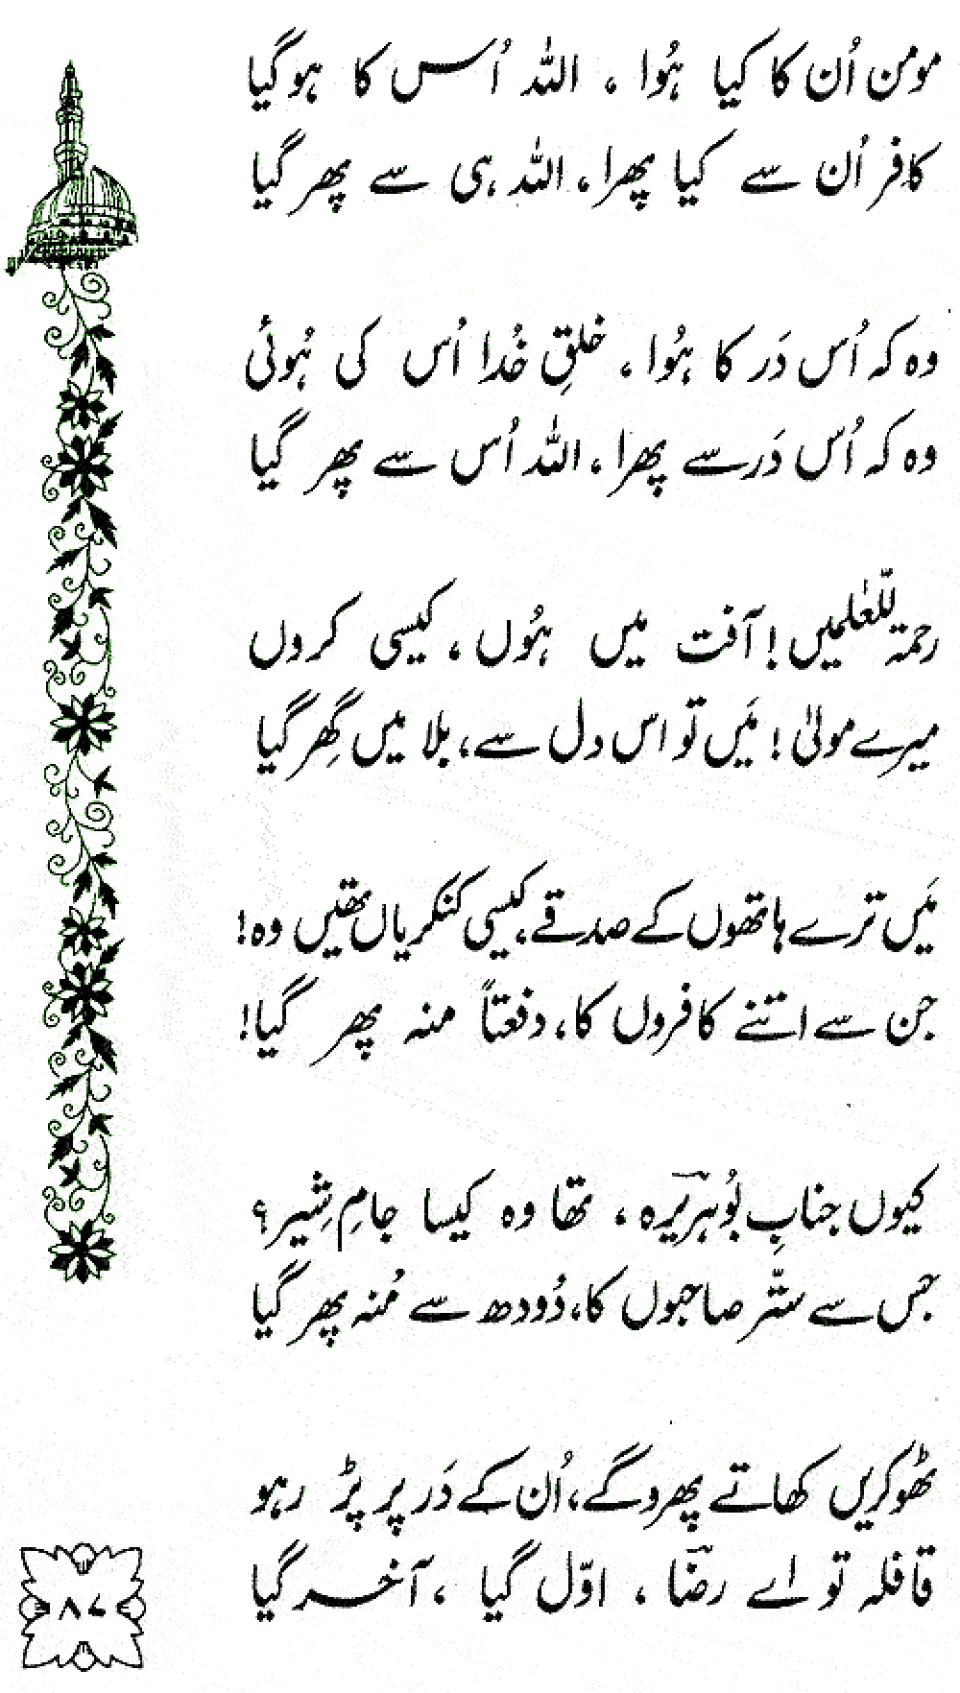 مومن اُن کا کیا ہُوا ، اللہ اُس کا ہوگیا
کافر اُن سے کیا پھرا ، اللہ ہی سے پھر گیا
وہ کہ اُس دَر کا ہُوا ، خلقِ خُدا اُس کی ہُوئی
وہ کہ اُس دَر سے پھرا ، اللہ اُس سے پھر گیا
رحمۃ للّعٰلمیں ! آفت میں ہُوں ، کیسی کروں
میرے مولیٰ ! مَیں تو اس دل سے ، بلا میں گھِر گیا
مَیں ترے ہاتھوں کے صدقے ، کیسی کنکریاں تھیں وہ !
جن سے اتنے کافروں کا ، دفعتاً منہ پھر گیا !
کیوں جنابِ بُوہریرہ ، تھا وہ کیسا جامِ شِیر ؟
جس سے ستّر صاحبوں کا ، دُودھ سے مُنہ پھر گیا
ٹھوکریں کھاتے پھروگے ، اُن کے دَر پر پڑ رہو
قافلہ تو اے رضؔا ، اوّل گیا ، آخر گیا
۸۷